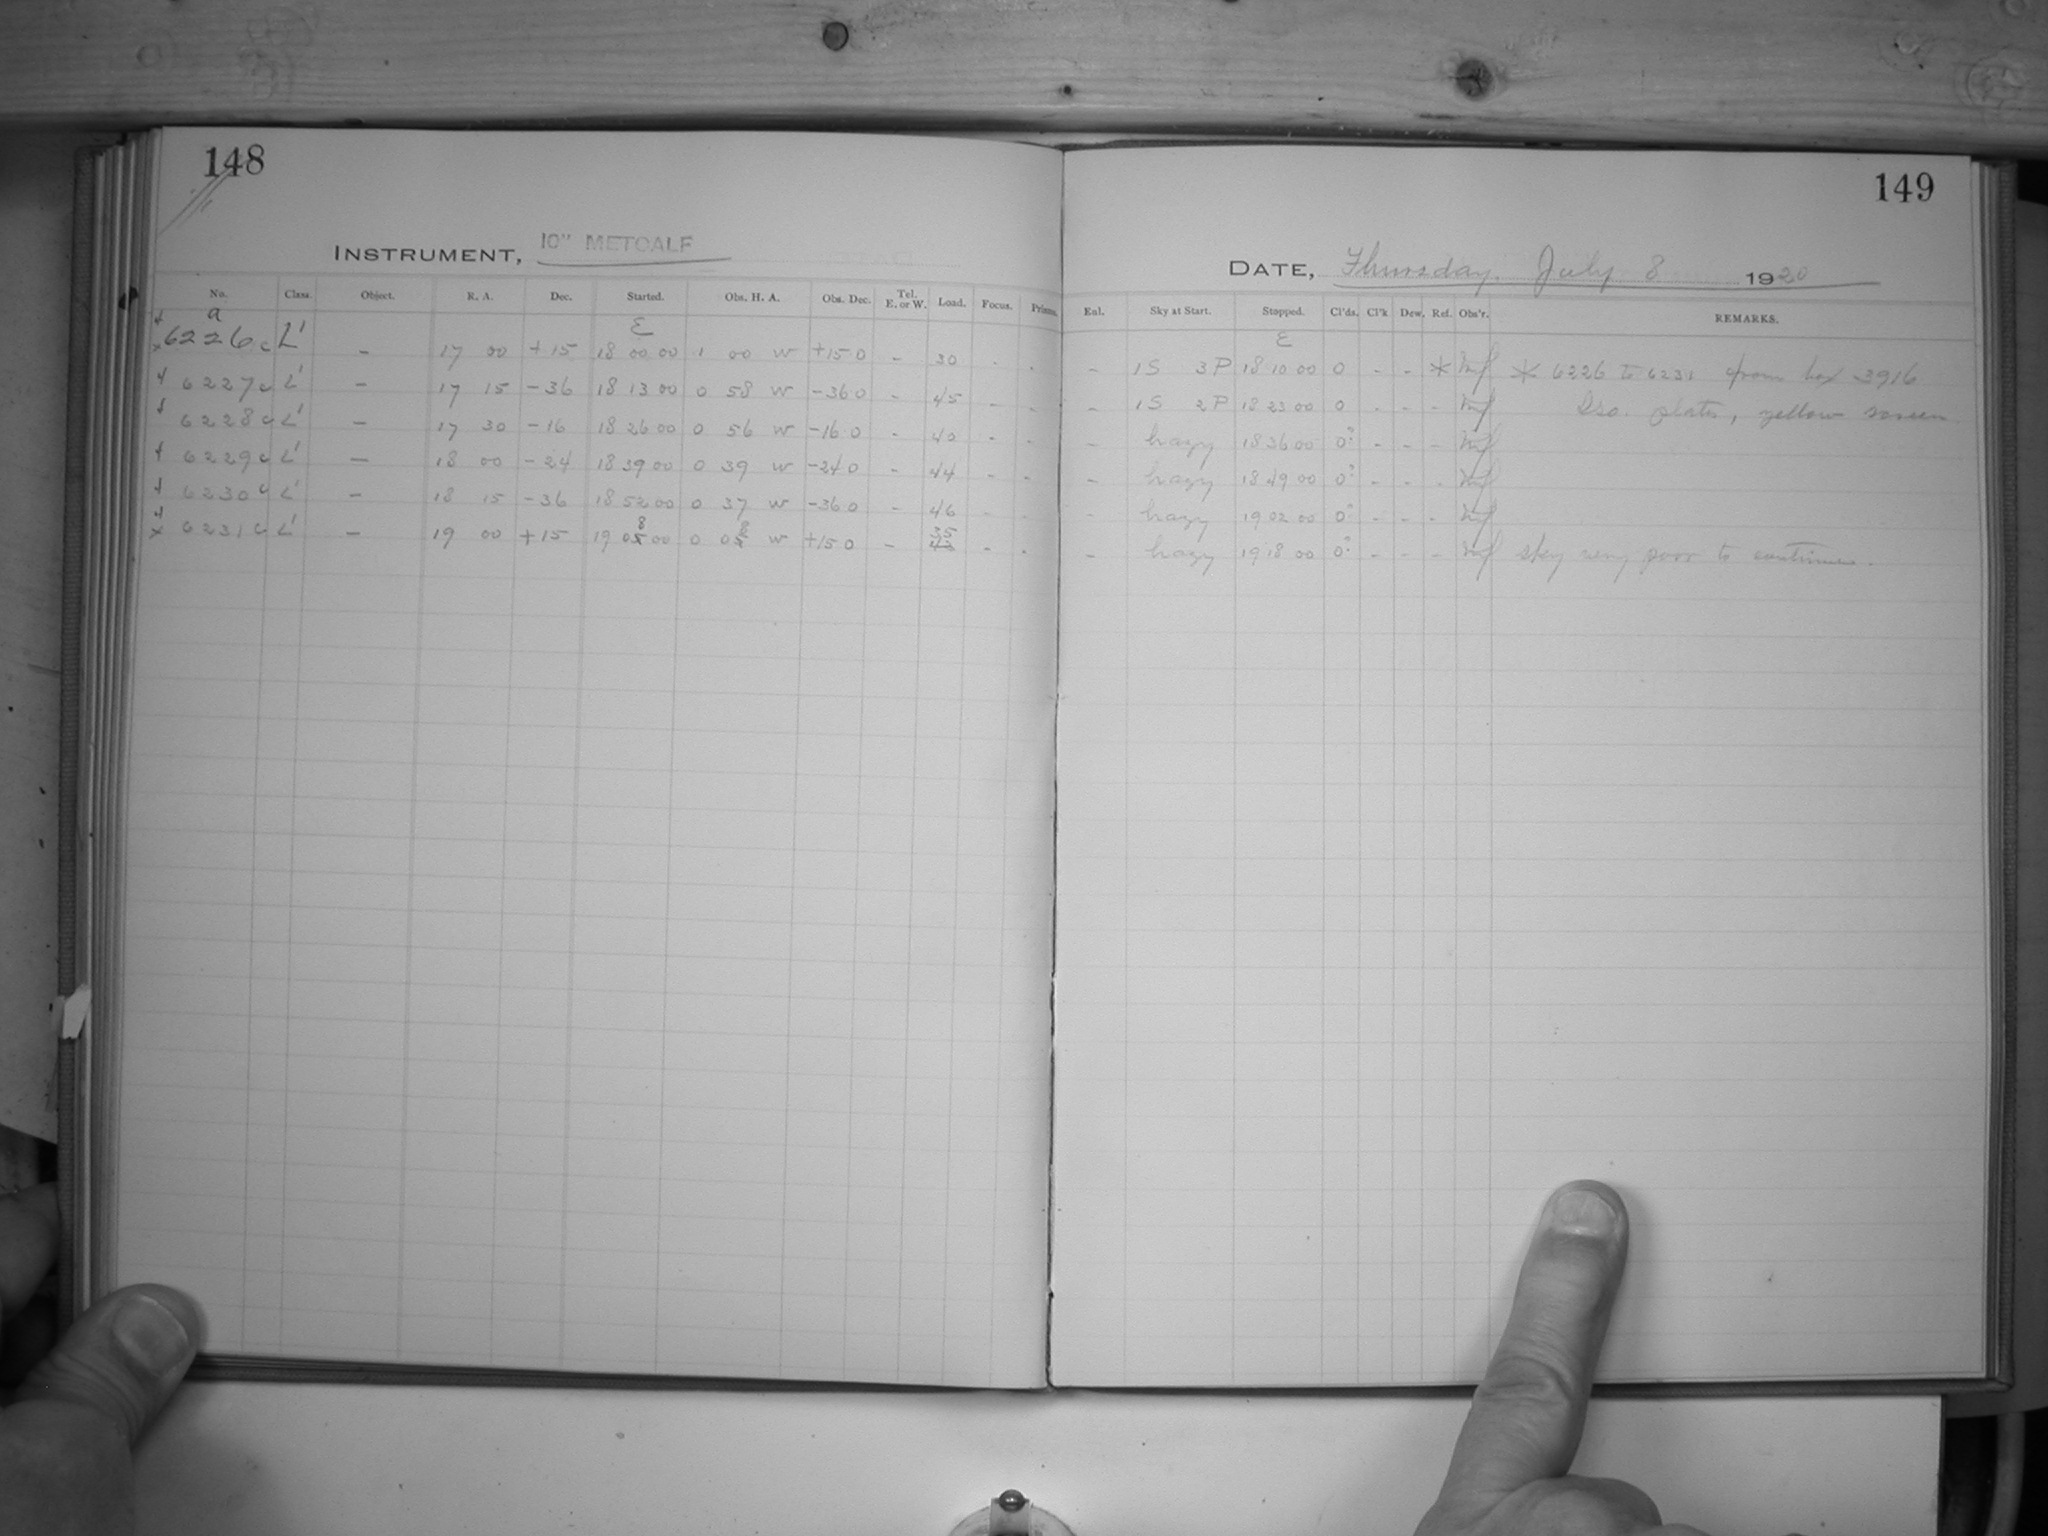 148
149
INSTRUMENT, 10" METCALF
DATE, Thursday, July 8 1920
No. Class. Object. R. A. Dec. Started. Obs. H. A. Obs. Dec. Tel. E. or W. Load. Focus. Prisms.
Eal. Sky at Start. Stopped. Cl'ds. Cl'k Dew. Ref. Obs'r. REMARKS.
a E E
6226c L' - 17 00 +15 18 00 00 1 00 W +15 0 - 30 - - - 1S 3P 18 10 00 0 - - * * 6226 to 6231 from box 3916
6227c L' - 17 15 -36 18 13 00 0 58 W -36 0 - 45 - - - 1S 2P 18 23 00 0 - - - Iso. plates, yellow screen
6228c L' - 17 30 -16 18 26 00 0 56 W -16 0 - 40 - - - hazy 18 36 00 0? - - -
6229c L' - 18 00 -24 18 39 00 0 39 W -24 0 - 44 - - - hazy 18 49 00 0? - - -
6230c L' - 18 15 -36 18 52 00 0 37 W -36 0 - 46 - - - hazy 19 02 00 0? - - -
6231c L' - 19 00 +15 19 08 00 0 08 W +15 0 - 35 - - - hazy 19 18 00 0? - - - sky very poor to continue.